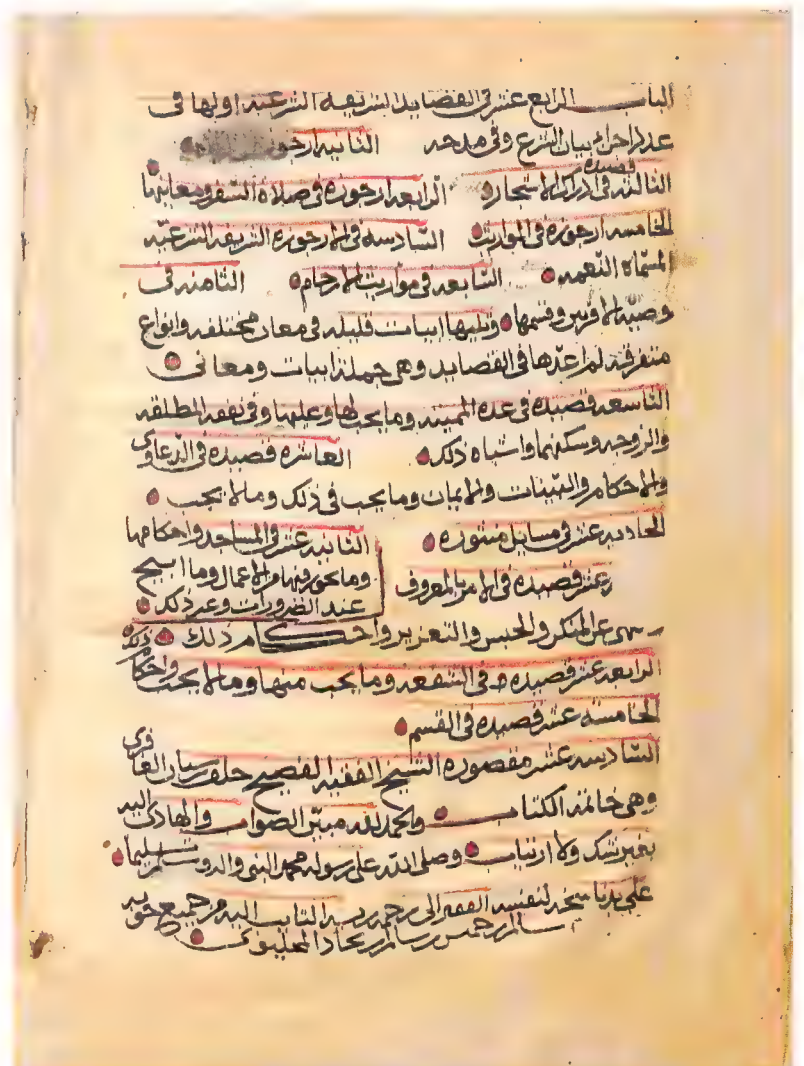 الباب الرابع عشر في القصايد الشريفة الشرعية اولها في
عدد اجزاء بيان الشرع وفي مدحه الثانيه ارجوزه
قصيدة
الثالثه في ادراك الاشجار الرابعه ارجوزه في صلاة السفر ومعانيها
الخامسه ارجوزه في المواريث السادسه في الارجوزه الشريفه الشرعيه
المسماة النعمه السابعه في مواريث الارحام الثامنه في
وصية الاقربين وقسمها وتليها ابيات قليله في معان مختلفه وانواع
متفرقة لم اعدها في القصايد وهي جملة ابيات ومعاني
التاسعه قصيده في عدة المميته وما يجب لها وعليها وفي نفقه المطلقه
والزوجه وسكنهما واشباه ذلك العاشره قصيده في الدعاوي
والاحكام والبينات والايمان وما يجب في ذلك وما لا يجب
الحاديه عشر في مسايل منثوره الثانيه عشر في المساجد واحكامها
وما يجوز فيها من الاعمال وما ابيح
عشر قصيده في الامر بالمعروف
عند الضرورات وغير ذلك
عن المنكر والحبس والتعزير واحكام ذلك
الرابعه عشر قصيده في الشفعه وما يجب منها وما لا يجب واحكام ذلك
الخامسة عشر قصيده في القسم
السادسه عشر مقصورة الشيخ الفقيه الفصيح خلف بن سنان الغافري
وهي خاتمة الكتاب والحمد لله مبين الصواب والهادي اليه
بغير شك ولا ارتياب وصلى الله على رسوله محمد النبي واله وسلم تسليما
على يد ناسخه لنفسه الفقير الى رحمة ربه التايب اليه من جميع حوبه
سالم بن سالم بن